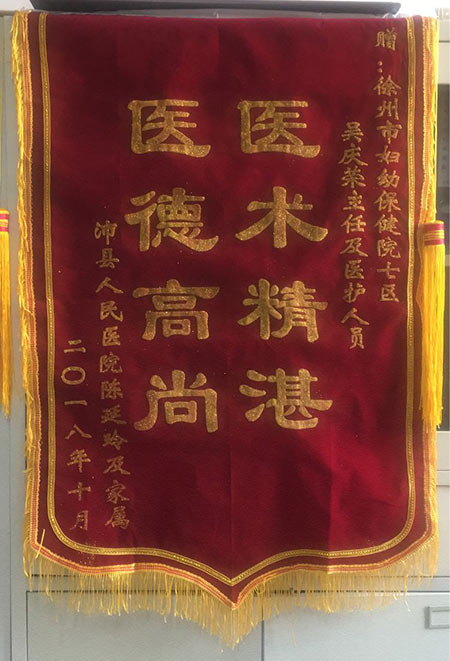 赠：徐州市妇幼保健院七区
吴庆荣主任及医护人员
医术精湛
医德高尚
沛县人民医院陈廷玲及家属
二〇一八年十月